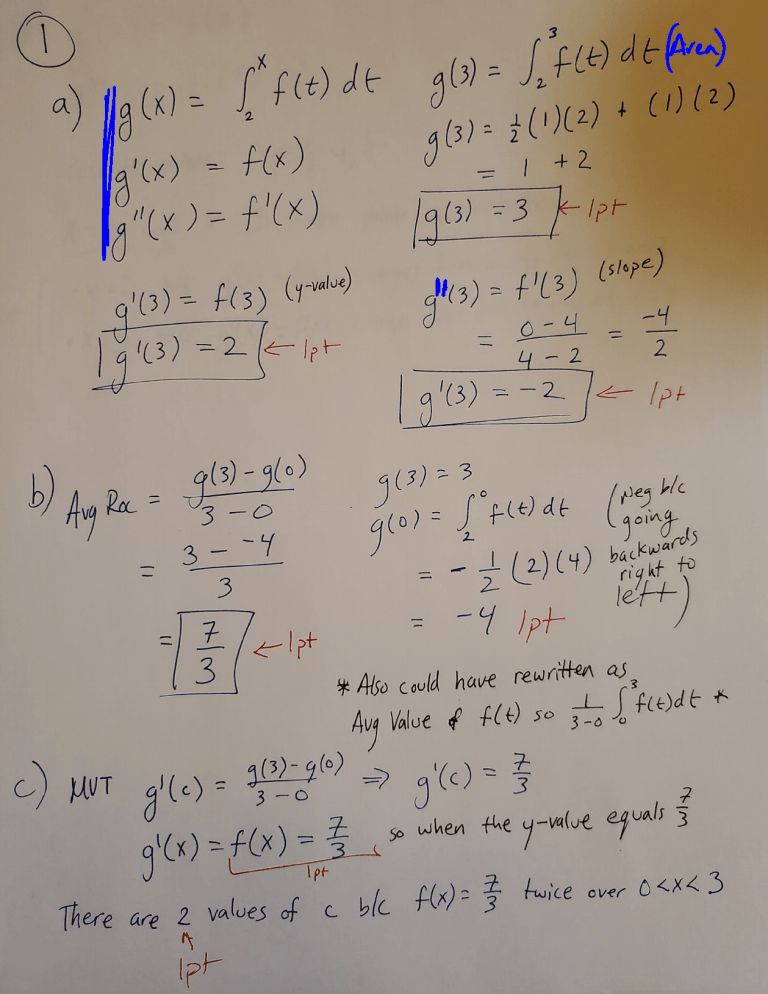 1
a) g(x) = ∫₂ˣ f(t) dt
g'(x) = f(x)
g"(x) = f'(x)
g(3) = ∫₂³ f(t) dt (Area)
g(3) = ½(1)(2) + (1)(2)
= 1 + 2
g(3) = 3 ← 1pt
g'(3) = f(3) (y-value)
g'(3) = 2 ← 1pt
g"(3) = f'(3) (slope)
= (0-4)/(4-2) = -4/2
g'(3) = -2 ← 1pt
b) Avg Roc = (g(3)-g(0))/(3-0)
= (3 - -4)/3
= 7/3 ← 1pt
g(3) = 3
g(0) = ∫₂⁰ f(t) dt
= -½(2)(4)
= -4 1pt
(Neg b/c
going
backwards
right to
left)
* Also could have rewritten as
Avg Value of f(t) so 1/(3-0) ∫₀³ f(t)dt *
c) MVT g'(c) = (g(3)-g(0))/(3-0) ⇒ g'(c) = 7/3
g'(x) = f(x) = 7/3 so when the y-value equals 7/3
1pt
There are 2 values of c b/c f(x) = 7/3 twice over 0<x<3
1pt